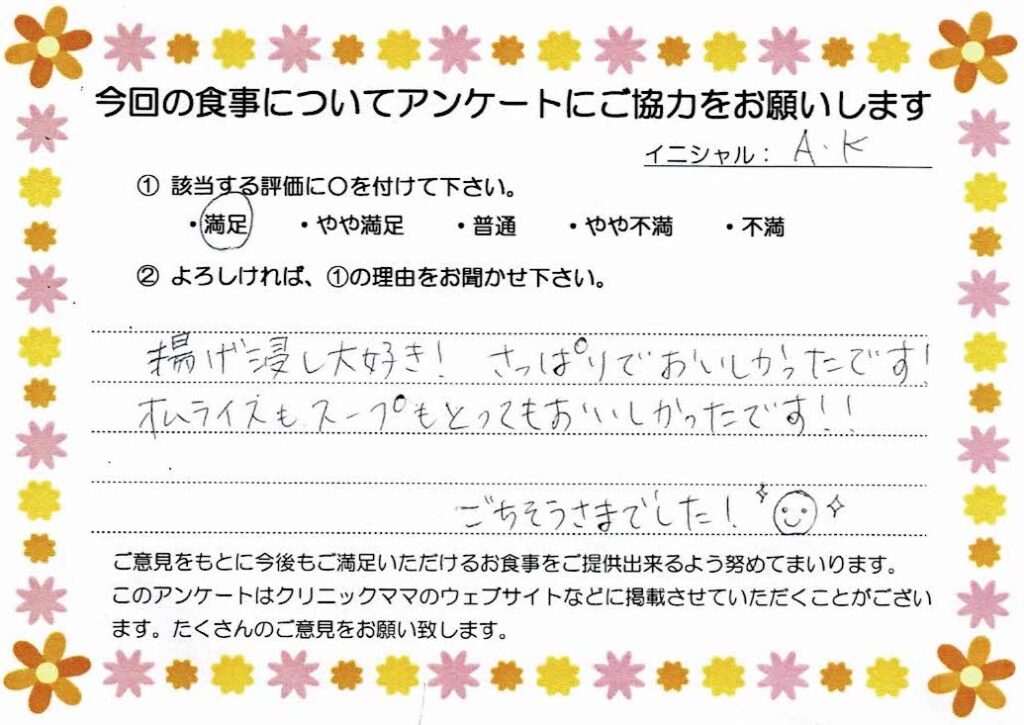 今回の食事についてアンケートにご協力をお願いします
イニシャル： A.K
① 該当する評価に○を付けて下さい。
・満足 ・やや満足 ・普通 ・やや不満 ・不満
② よろしければ、①の理由をお聞かせ下さい。
揚げ浸し大好き！ さっぱりでおいしかったです！
オムライスもスープもとってもおいしかったです！！
ごちそうさまでした！
ご意見をもとに今後もご満足いただけるお食事をご提供出来るよう努めてまいります。
このアンケートはクリニックママのウェブサイトなどに掲載させていただくことがござい
ます。たくさんのご意見をお願い致します。